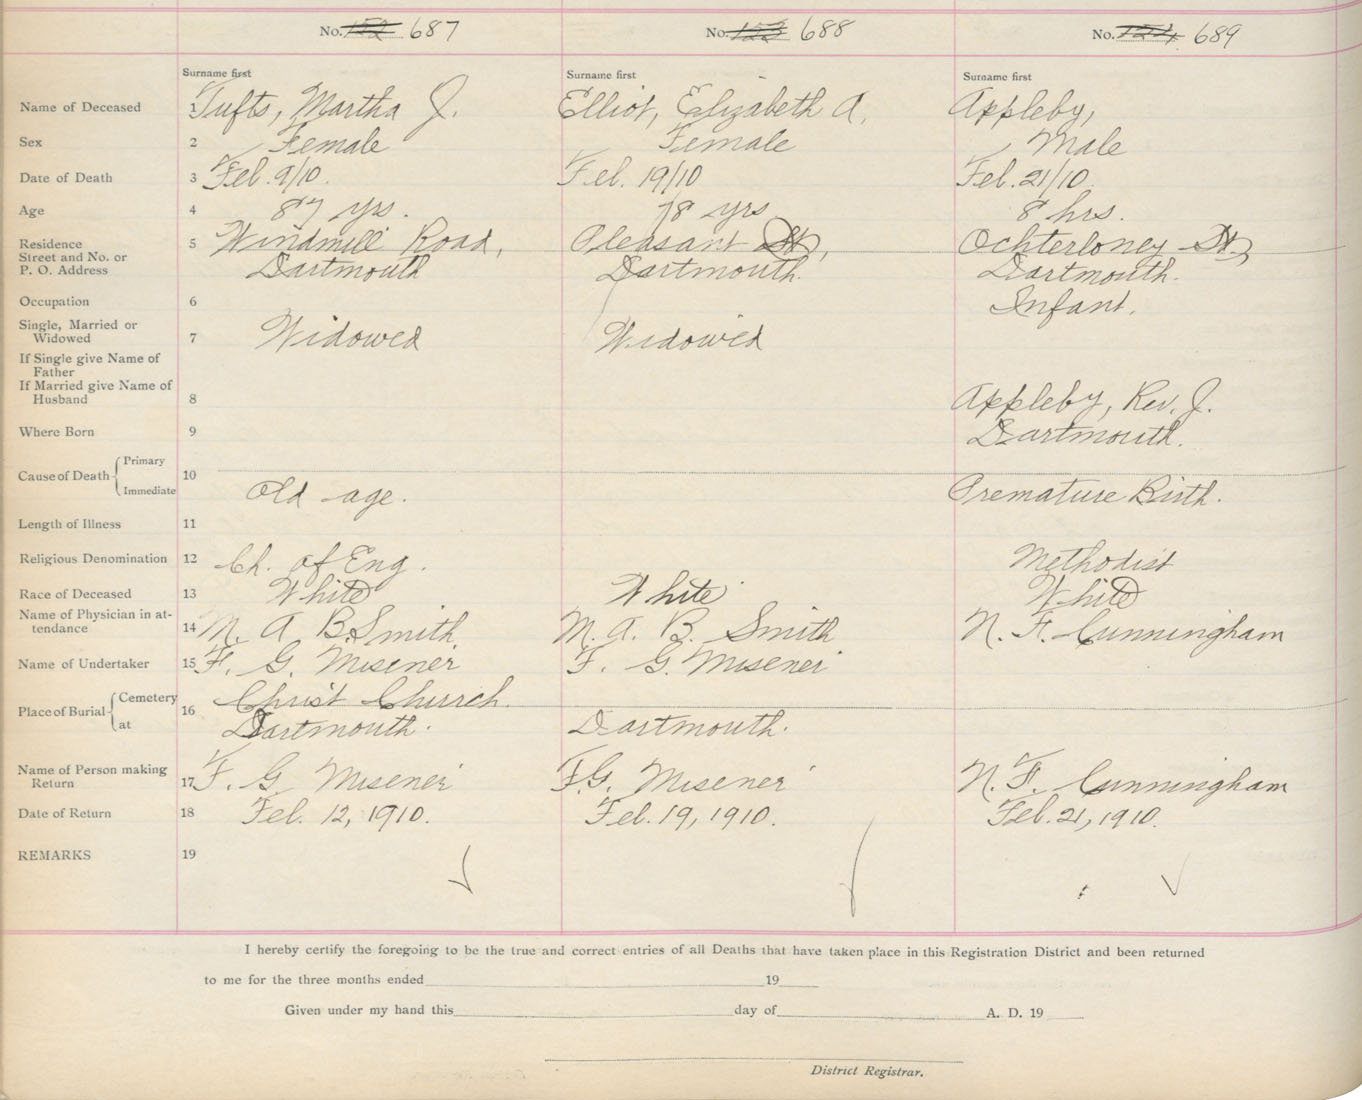 No. 152 687 No. 153 688 No. 154 689
Surname first Surname first Surname first
Name of Deceased 1 Tufts, Martha J. Elliot, Elizabeth A. Appleby,
Sex 2 Female Female Male
Date of Death 3 Feb. 9/10. Feb. 19/10 Feb. 21/10.
Age 4 87 yrs. 78 yrs 8 hrs.
Residence 5 Windmill Road, Pleasant St, Ochterloney St.
Street and No. or
P. O. Address Dartmouth Dartmouth. Dartmouth.
Occupation 6 Infant.
Single, Married or
Widowed 7 Widowed Widowed
If Single give Name of
Father
If Married give Name of
Husband 8 Appleby, Rev. J.
Where Born 9 Dartmouth.
Primary
Cause of Death 10
Immediate Old age. Premature Birth.
Length of Illness 11
Religious Denomination 12 Ch. of Eng. Methodist
Race of Deceased 13 White White White
Name of Physician in at-
tendance 14 M. A. B. Smith M. A. B. Smith N. F. Cunningham
Name of Undertaker 15 F. G. Misener F. G. Misener
Cemetery Christ Church.
Place of Burial 16
at Dartmouth. Dartmouth.
Name of Person making
Return 17 F. G. Misener F.G. Misener N. F. Cunningham
Date of Return 18 Feb. 12, 1910. Feb. 19, 1910. Feb. 21, 1910.
REMARKS 19
I hereby certify the foregoing to be the true and correct entries of all Deaths that have taken place in this Registration District and been returned
to me for the three months ended 19
Given under my hand this day of A. D. 19
District Registrar.